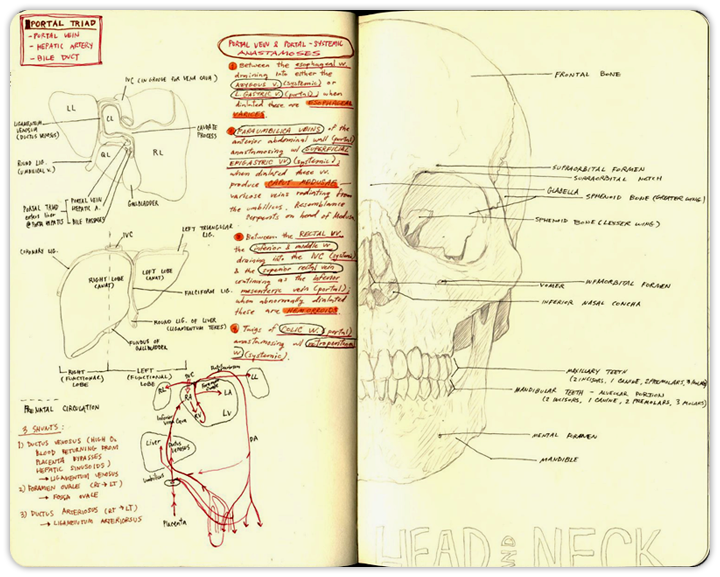 PORTAL TRIAD
- PORTAL VEIN
- HEPATIC ARTERY
- BILE DUCT
IVC (IN GROOVE FOR VENA CAVA)
LL
CL
QL
RL
LIGAMENTUM
VENOSUM
(DUCTUS VENOSUS)
CAUDATE
PROCESS
ROUND LIG.
(UMBILICAL V.)
GALLBLADDER
PORTAL TRIAD
enters liver
@ PORTA HEPATIS
PORTAL VEIN
HEPATIC A.
BILE PASSAGES
IVC
LEFT TRIANGULAR
LIG.
CORONARY LIG.
RIGHT LOBE
(ANAT)
LEFT LOBE
(ANAT)
FALCIFORM LIG.
ROUND LIG. OF LIVER
(LIGAMENTUM TERES)
FUNDUS OF
GALLBLADDER
RIGHT
(FUNCTIONAL)
LOBE
LEFT
(FUNCTIONAL)
LOBE
PRENATAL CIRCULATION
3 SHUNTS:
1) DUCTUS VENOSUS (HIGH O2
BLOOD RETURNING FROM
PLACENTA BYPASSES
HEPATIC SINUSOIDS)
→ LIGAMENTUM VENOSUS
2) FORAMEN OVALE (RT → LT)
→ FOSSA OVALE
3) DUCTUS ARTERIOSUS (RT → LT)
→ LIGAMENTUM ARTERIORSUS
RL
IVC
LL
RA
LA
RV
LV
Inferior
vena cava
DA
Liver
Ductus
venosus
Umbilicus
Placenta
PORTAL VEIN & PORTAL-SYSTEMIC
ANASTAMOSES
① Between the esophageal vv.
draining into either the
AZYGOUS V. (systemic) or
L. GASTRIC V. (portal); when
dialated these are ESOPHAGEAL
VARICES.
② PARAUMBILICA VEINS of the
anterior abdominal wall (portal)
anastamosing w/ SUPERFICIAL
EPIGASTRIC VV (systemic);
when dialated these vv.
produce CAPUT MEDUSAE -
varicose veins radiating from
the umbilicus. Resemblance
serpents on head of Medusa
③ Between the RECTAL VV.
the inferior & middle vv
draining into the IVC (systemic)
& the superior rectal vein
continuing as the inferior
mesenteric vein (portal);
when abnormally dialated
these are HEMORROIDS
④ Twigs of COLIC VV. (portal)
anastamosing w/ retroperitoneal
VV (systemic).
FRONTAL BONE
SUPRAORBITAL FORMEN
SUPRAORBITAL NOTCH
GLABELLA
SPHENOID BONE (GREATER WING)
SPHENOID BONE (LESSER WING)
INFRAORBITAL FORAMEN
VOMER
INFERIOR NASAL CONCHA
MAXILLARY TEETH
(2 INCISORS, 1 CANINE, 2 PREMOLARS, 3 MOLARS)
MANDIBULAR TEETH - ALVEOLAR PORTION
(2 INCISORS, 1 CANINE, 2 PREMOLARS, 3 MOLARS)
MENTAL FORAMEN
MANDIBLE
HEAD AND NECK